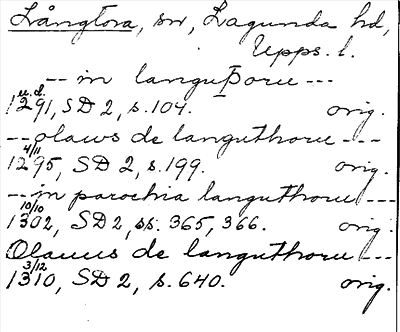 Långtora, sn, Lagunda hd,
Upps. l.
-- in languÞoru ---
u.d.
1291, SD 2, s. 104. orig.
-- olaws de languthoru ---
4/11
1295, SD 2, s. 199. orig.
-- in parochia languthoru ---
10/10
1302, SD 2, ss. 365, 366. orig.
Olauus de languthoru --
3/12
1310, SD 2, s. 640. orig.